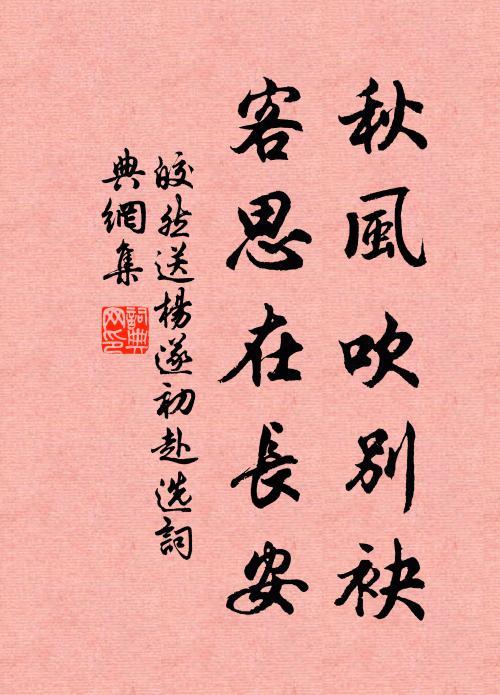 秋風吹別袂
客思在長安
皎然送楊遂初赴选詞
典網集
詞典
网印